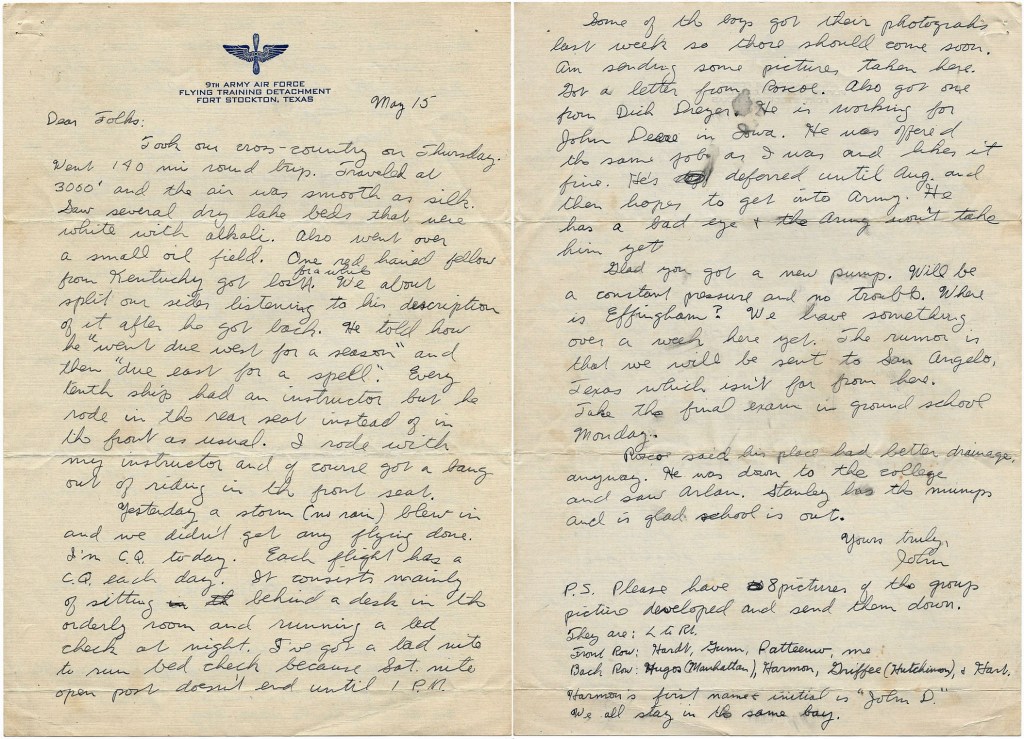 9TH ARMY AIR FORCE
FLYING TRAINING DETACHMENT
FORT STOCKTON, TEXAS
May 15
Dear Folks:
Took our cross-country on Thursday.
Went 140 mi round trip. Traveled at
3000' and the air was smooth as silk.
Saw several dry lake beds that were
white with alkali. Also went over
a small oil field. One red haired fellow
from Kentucky got lost for a while. We about
split our sides listening to his description
of it after he got back. He told how
he "went due west for a season" and
then "due east for a spell". Every
tenth ship had an instructor but he
rode in the rear seat instead of in
the front as usual. I rode with
my instructor and of course got a bang
out of riding in the front seat.
Yesterday a storm (no rain) blew in
and we didn't get any flying done.
I'm C.Q. today. Each flight has a
C.Q. each day. It consists mainly
of sitting behind a desk in the
orderly room and running a bed
check at night. I've got a bad nite
to run bed check because Sat. nite
open post doesn't end until 1 P.M.
Some of the boys got their photographs
last week so those should come soon.
Am sending some pictures taken here.
Got a letter from Roscoe. Also got one
from Dick Dreyer. He is working for
John Deere in Iowa. He was offered
the same job as I was and likes it
fine. He's deferred until Aug. and
then hopes to get into Army. He
has a bad eye & the Army won't take
him yet
Glad you got a new pump. Will be
a constant pressure and no trouble. Where
is Effingham? We have something
over a week here yet. The rumor is
that we will be sent to San Angelo,
Texas which isn't far from here.
Take the final exam in ground school
Monday.
Roscoe said his place had better drainage,
anyway. He was down to the college
and saw Arlan. Stanley has the mumps
and is glad school is out.
Yours truly,
John
P.S. Please have 8 pictures of the group
picture developed and send them down.
They are: L to Rt.
Front Row: Hardt, Gunn, Patteeuw, me
Back Row: Hugos (Manhattan), Harmon, Griffee (Hutchinson), & Hart.
Harmon's first name & initial is "John D."
We all stay in the same bay.